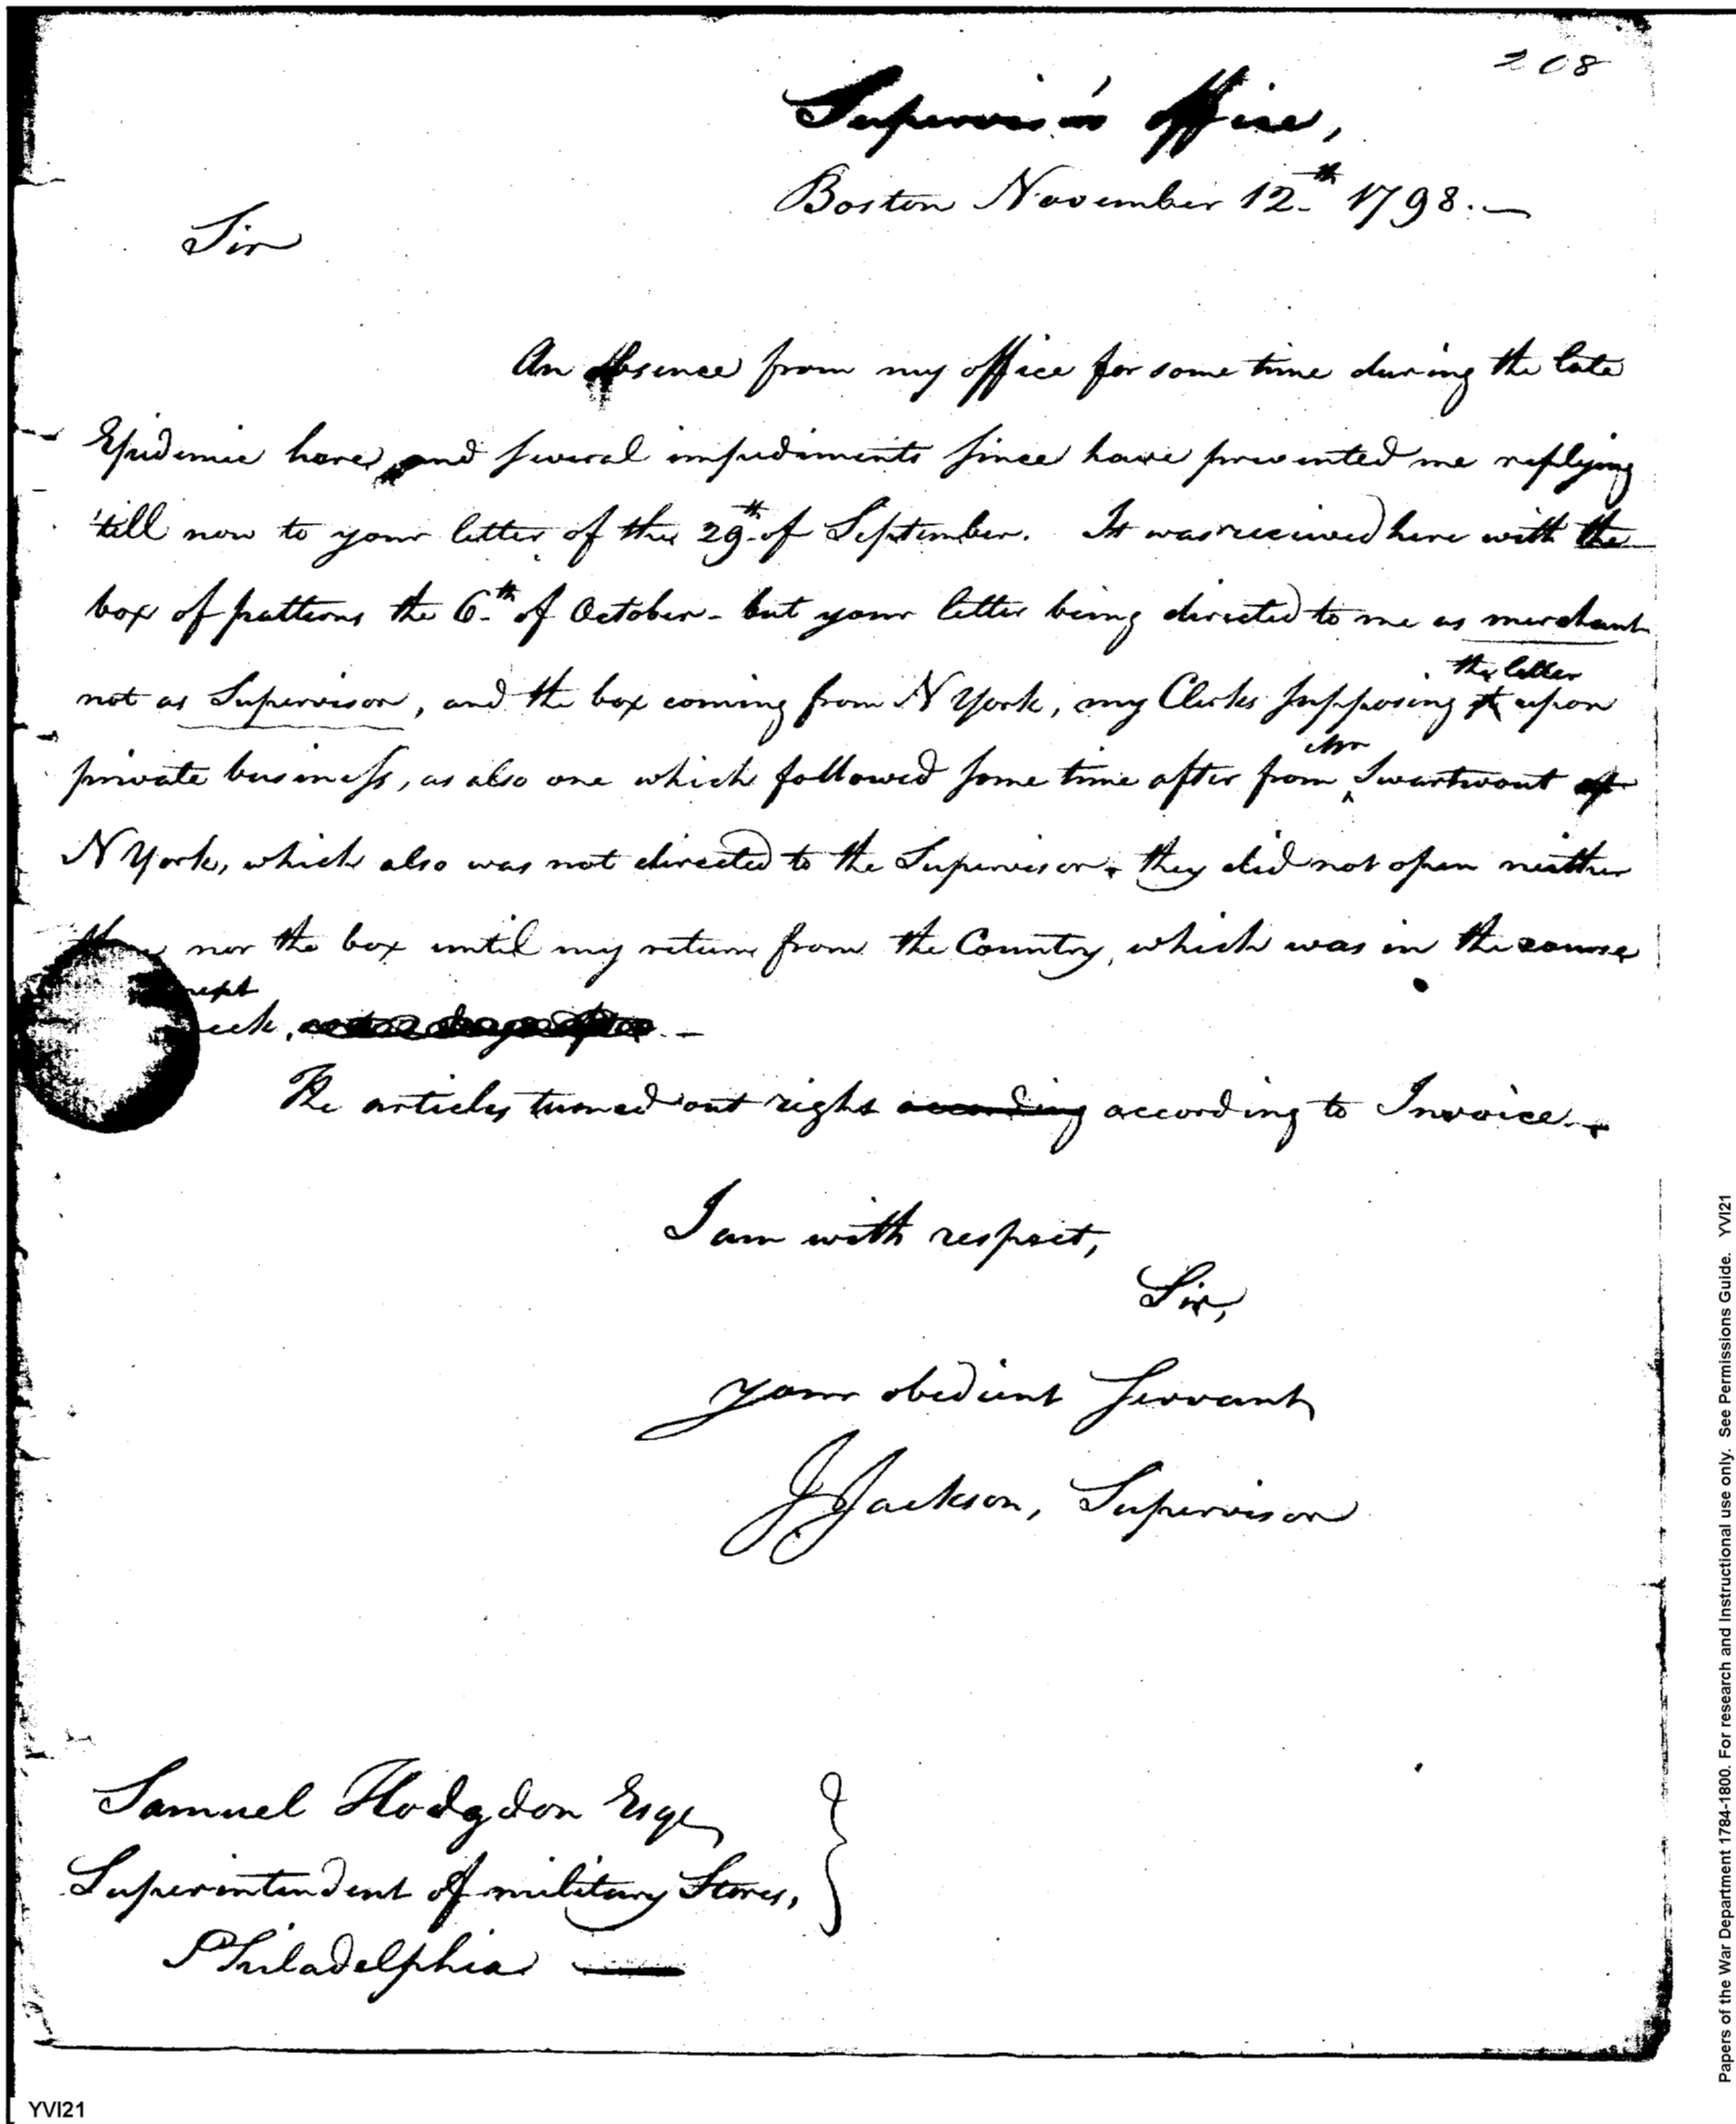 208
Supervisor's office,
Boston November 12th 1798.—
Sir
An absence from my office for some time during the late
Epidemic here, and several impediments since have prevented me replying
'till now to your letter of the 29th of September. It was received here with the
box of patterns the 6th of October - but your letter being directed to me as merchant
the letter
not as Supervisor, and the box coming from N York, my Clerks supposing it upon
Mr
private business, as also one which followed some time after from Swartwout of
N York, which also was not directed to the Supervisor. they did not open neither
nor the box until my return from the Country, which was in the course
next
eek,
The articles turned out right according according to Invoice.
I am with respect,
Sir,
your obedient Servant
J Jackson, Supervisor
Samuel Hodgdon Esqr
Superintendent of military Stores,
Philadelphia —
YVI21
Papers of the War Department 1784-1800. For research and Instructional use only. See Permissions Guide. YVI21